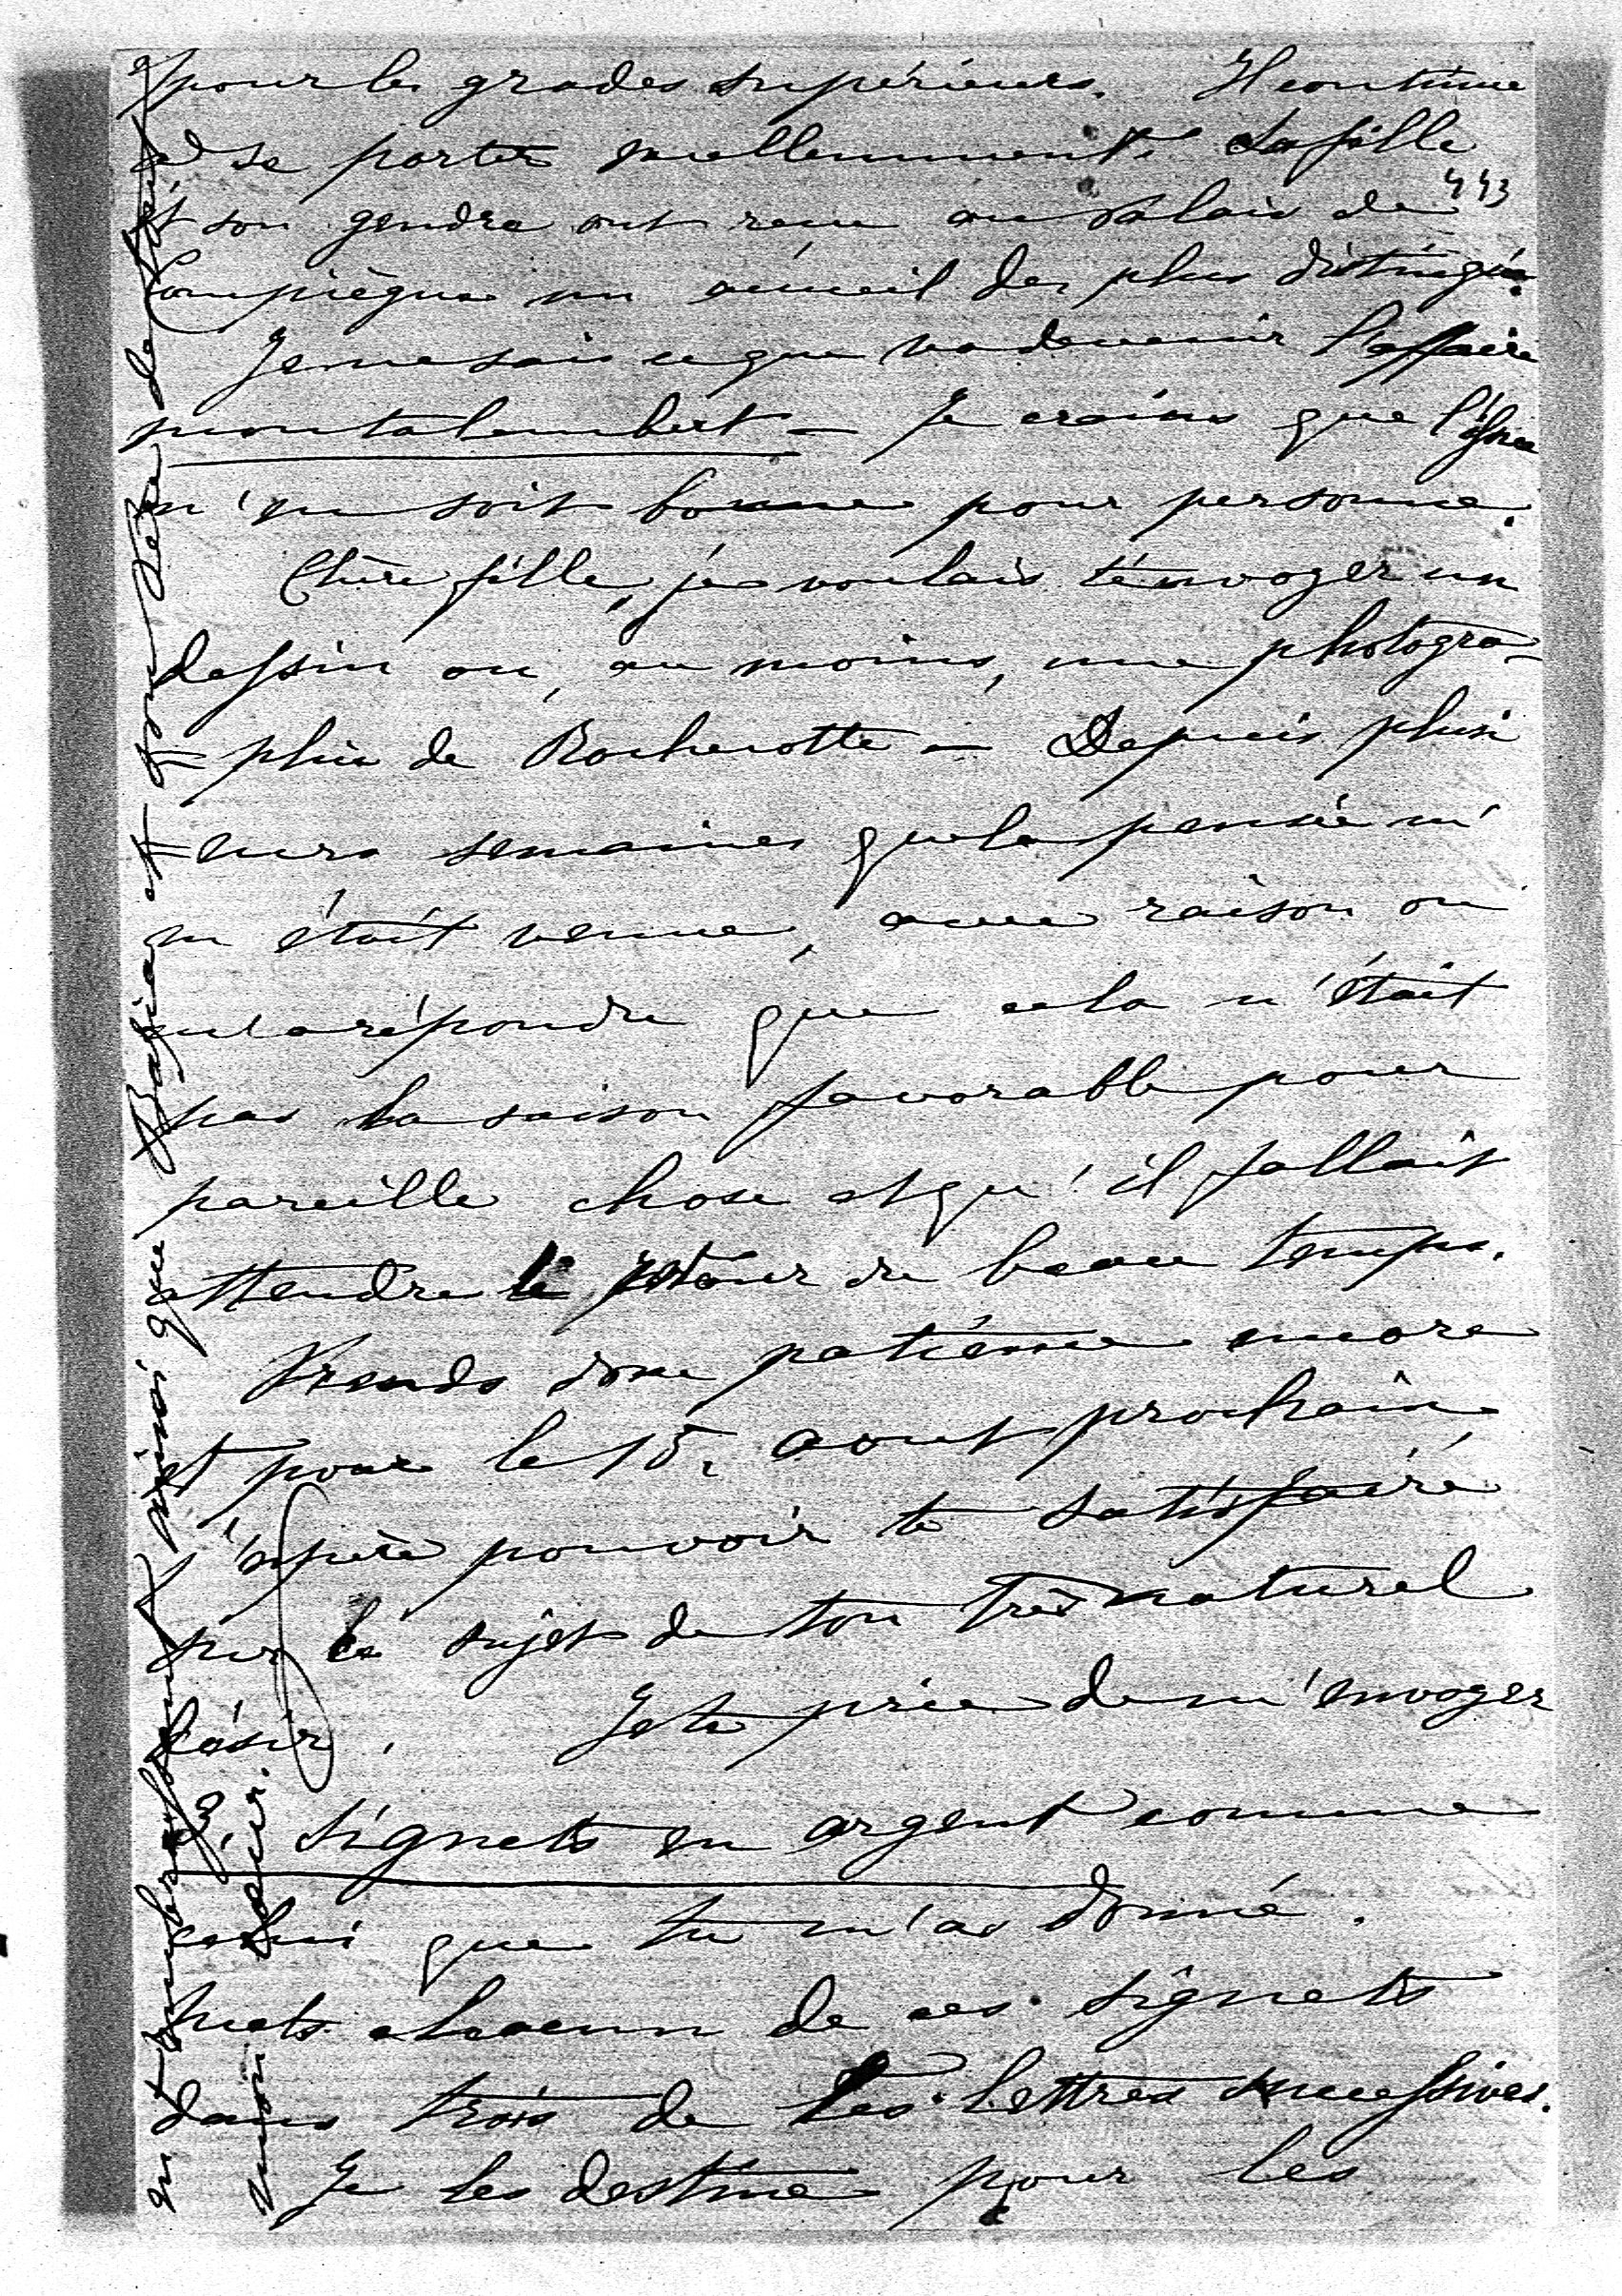 pour les grades supérieurs. Il continue
à se porter excellemment. Sa fille
443
et son gendre ont reçu au Palais de
Compiègne un accueil des plus distingués.
Je ne sais ce que va devenir l'affaire
montalembert — Je crains que l'issue
n'en soit bonne pour personne.
Chère fille, je voulais t'envoyer un
dessin ou, au moins, une photogra-
=phie de Rochecotte — Depuis plusi
=eurs semaines que la pensée m'
en était venue, avec raison on
m'a répondu que cela n'était
pas la saison favorable pour
pareille chose et qu'il fallait
attendre le retour du beau temps.
Prends donc patience encore
et pour le 15. aout prochain,
j'espère pouvoir te satisfaire
sur le sujet de ton très naturel
désir. Je te prie de m'envoyer
3 signets en argent comme
celui que tu m'as donné.
Mets chacun de ces signets
dans trois de tes lettres successives.
Je les destine pour les
ainsi que et son